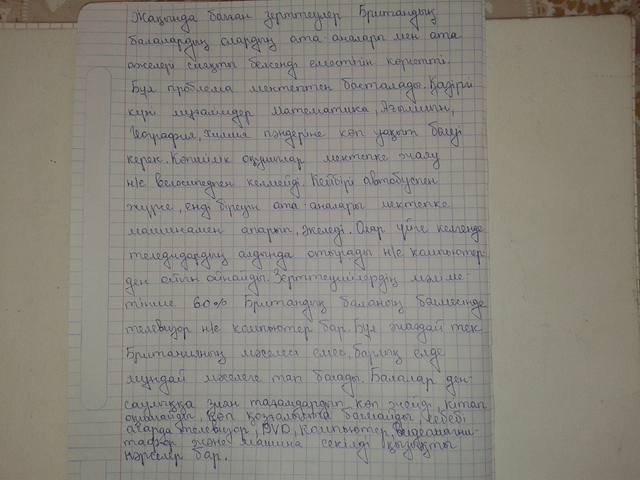 Жақында болған зерттеулер Британдық
балалардың олардың ата-аналары мен ата
әжелері сияқты белсенді еместігін көрсетті.
Бұл проблема мектептен басталады. Қазіргі
күні мұғалімдер Математика, Ағылшын,
География, Химия пәндеріне көп уақыт бөлуі
керек. Көпшілік оқушылар мектепке жаяу
н/е велосипедпен келмейді. Кейбірі автобуспен
жүрсе, енді біреуін ата-аналары мектепке
машинамен апарып, әкеледі. Олар үйге келгенде
теледидардың алдында отырады н/е компьютер-
ден ойын ойнайды. Зерттеушілердің мәліме-
тінше 60% Британдық баланың бөлмесінде
телевизор н/е компьютер бар. Бұл жағдай тек
Британияның мәселесі емес, барлық елде
мұндай мәселеге тап болады. Балалар ден-
саулыққа зиян тағамдардып көп жейді, кітап
оқымайды, көп қозғалыста болмайды, себебі
оларда телевизор, DVD, компьютер, видеомагни-
тафон және машина секілді қызықты
нәрселер бар.